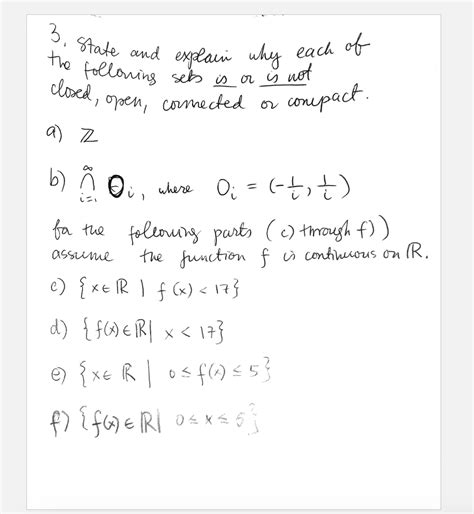 3. State and explain why each of
the following sets is or is not
closed, open, connected or compact.
a) ℤ
b) ∩_{i=1}^{∞} O_i, where O_i = (-1/i, 1/i)
for the following parts (c) through f))
assume the function f is continuous on ℝ.
c) {x ∈ ℝ | f(x) < 17}
d) {f(x) ∈ ℝ | x < 17}
e) {x ∈ ℝ | 0 ≤ f(x) ≤ 5}
f) {f(x) ∈ ℝ | 0 ≤ x ≤ 5}